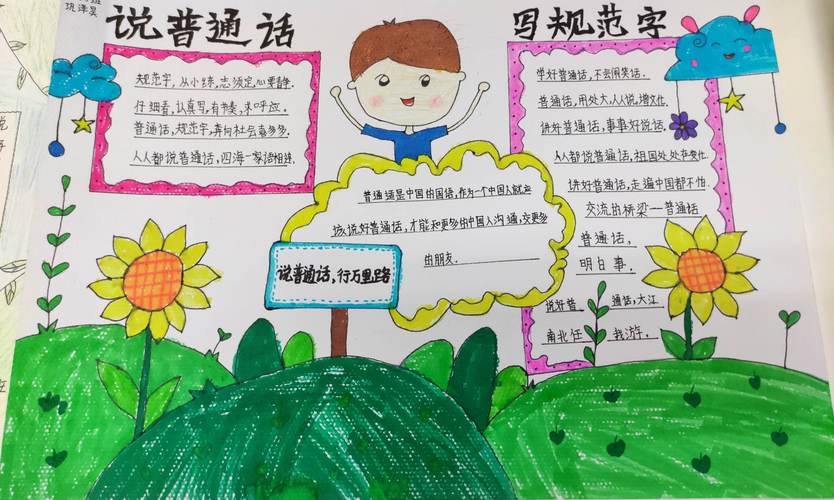 说普通话
写规范字
巩泽昊
规范字，从小练，志须定，心要静。
仔细看，认真写，有书奏，来呼应。
普通话，规范字，奔向社会喜多多，
人人都说普通话，四海一家语相连。
普通话是中国的国语，作为一个中国人就应
该说好普通话，才能和更多的中国人沟通，交更多
的朋友.
说普通话，行万里路
学好普通话，不会闹笑话.
普通话，用处大，人人说，增文化.
讲好普通话，事事好说话.
人人都说普通话，祖国处处在变化.
讲好普通话，走遍中国都不怕.
交流的桥梁一普通话
普通话，
明白事.
说好普通话，大江
南北任我游.